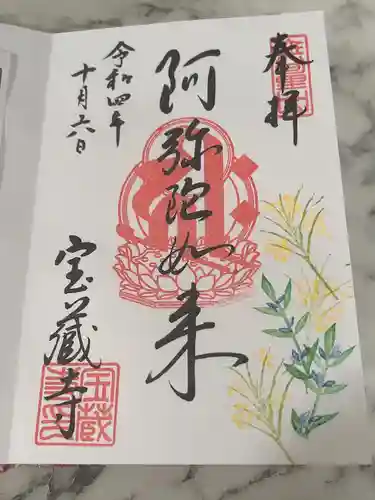 奉拝
阿弥陀如来
令和四年
十月六日
宝蔵寺